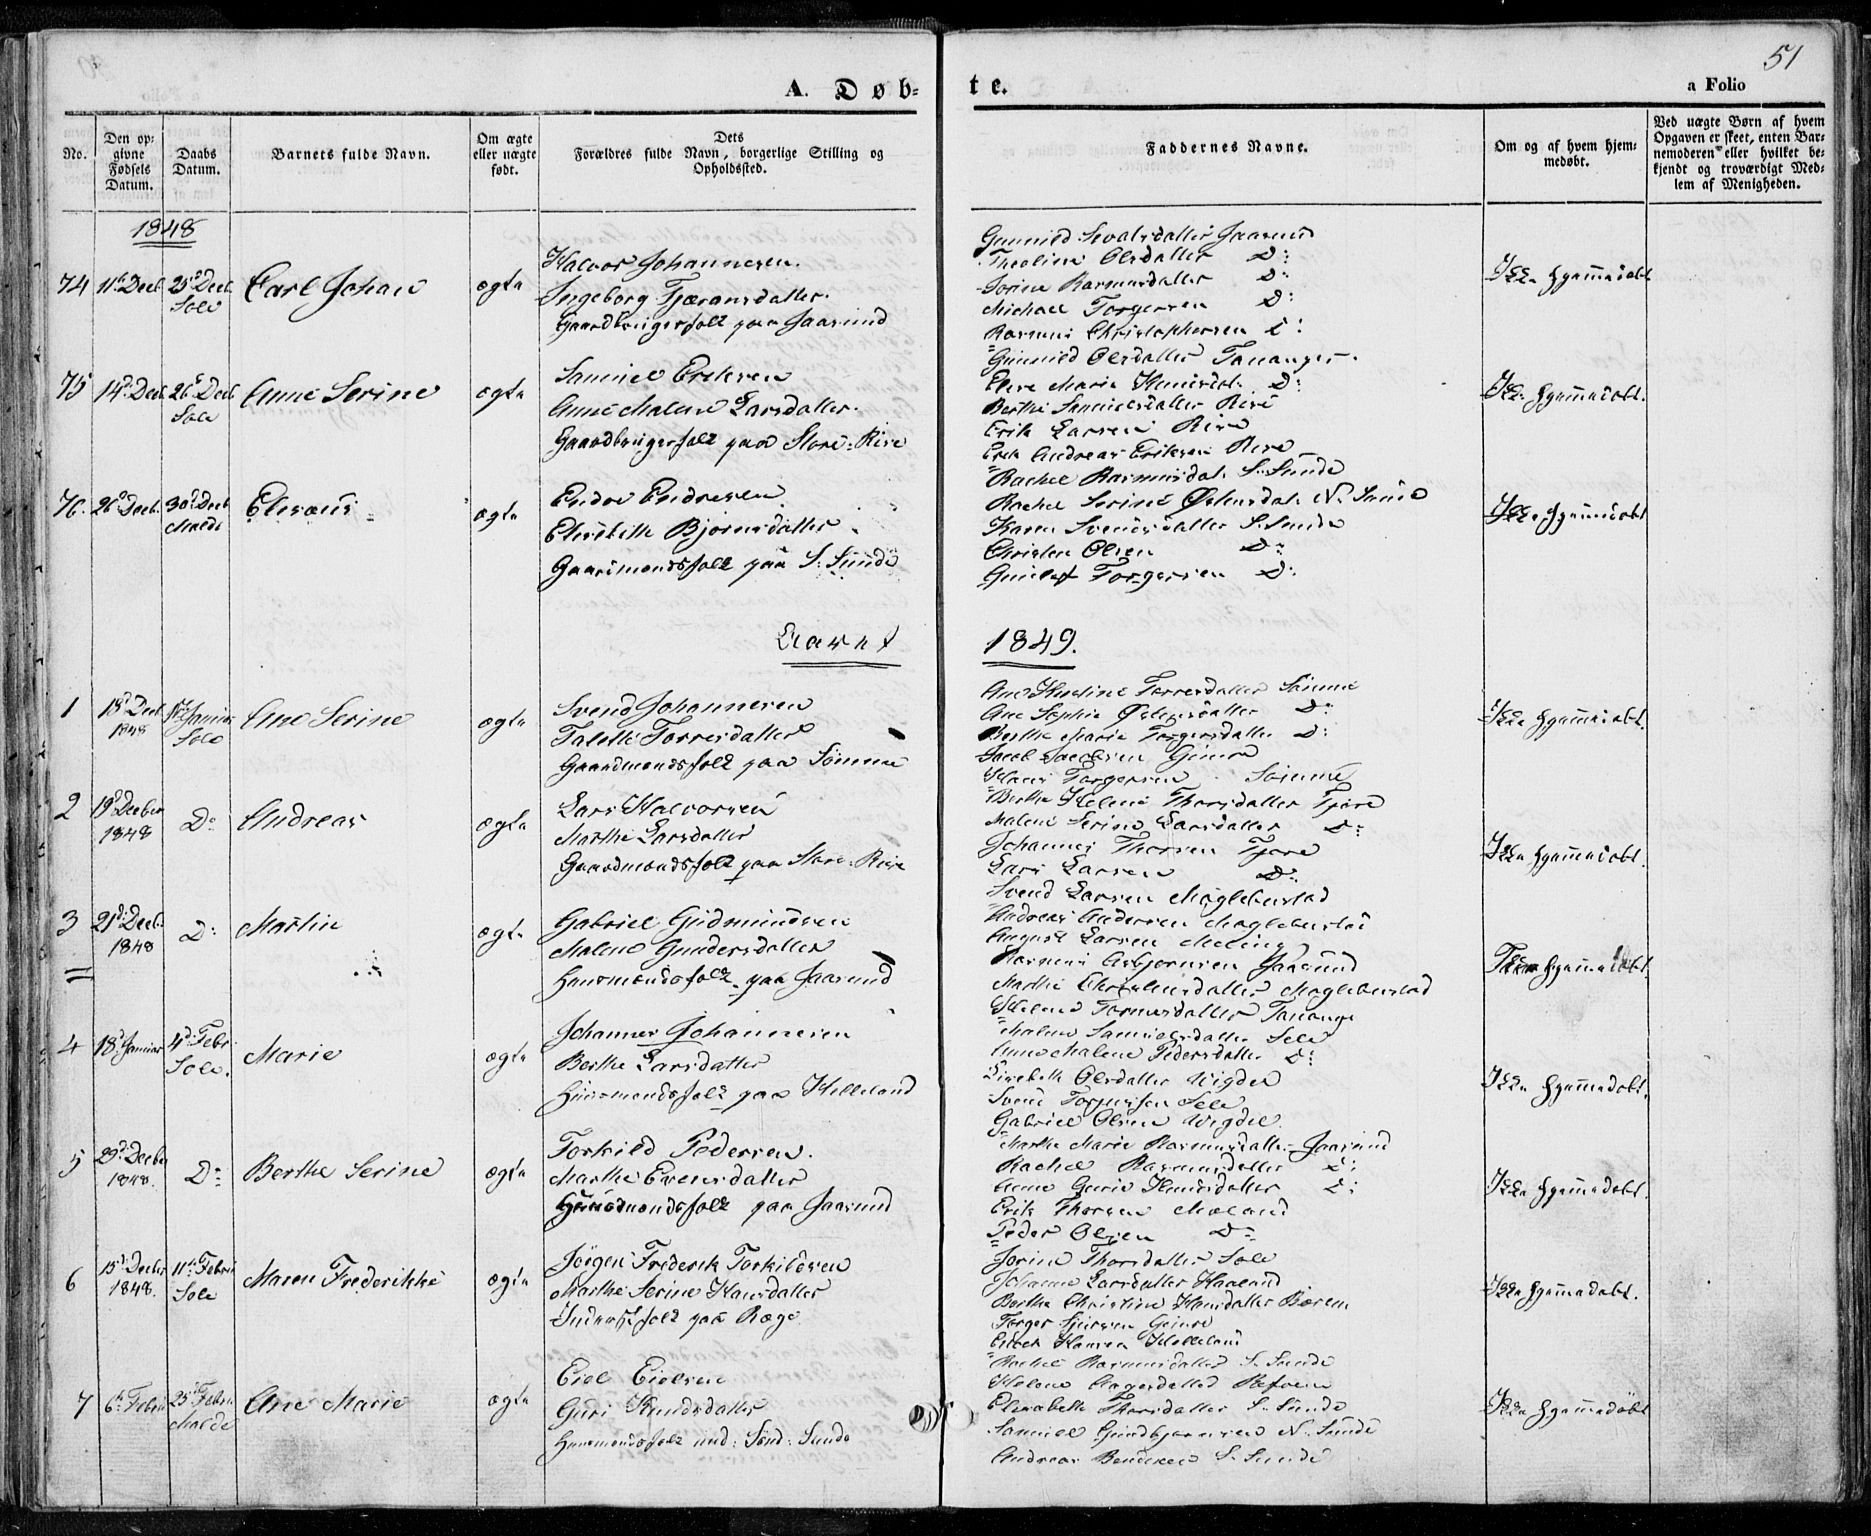 51
A. Døb-
te.
a Folio
No.
Den op-
givne
Fødsels
Datum.
Daabs
Datum.
Barnets fulde Navn.
Om ægte
eller uægte
født.
Dets
Forældres fulde Navn, borgerlige Stilling og
Opholdssted.
Faddernes Navne.
Om og af hvem hjem-
medøbt.
Ved uægte Børn af hvem
Opgaven er skeet, enten Bar-
nemoderen eller hvilket be-
kjendt og troværdigt Med-
lem af Menigheden.
1848
74
11te Decb.
25d Decb.
Sole
Carl Johan
ægte
Halvor Johannesen
Ingeborg Tjæransdatter
Gaardbrugerfolk paa Jaasund
Gunnild Sivalsdatter Jaasund
Theoline Olsdatter D:
Sorine Rasmusdatter D:
Michael Torgersen D:
Rasmus Christophersen D:
Ikke hjemmedøbt
75
14d Decb.
26d Decb.
Sole
Anne Serine
ægte
Samuel Eriksen
Anne Malene Larsdatter
Gaardbrugerfolk paa Store-Risе
Gunnild Olsdatter Tananger
Else Marie Knudsdat. D:
Berthe Samuelsdatter Rise
Erik Larsen Rise
Erik Andreas Eriksen Rise
Ikke hjemmedøbt.
76.
26d Decb.
30d Decb.
Malde
Elisæus
ægte
Endre Endresen
Elisebeth Bjørnsdatter
Gaardmandsfolk paa S. Sunde
Rachel Rasmusdat. S. Sunde
Rachel Serine Østensdat. N. Sunde
Karen Svendsdatter S. Sunde
Christen Olsen D:
Gunlef Torgersen D:
Ikke hjemmedøbt
Aaret
1849.
1
18d Decb.
1848
Januar
Sole
Ane Serine
ægte
Svend Johannesen
Talette Torresdatter
Gaardmandsfolk paa Sømme
Ane Thorine Torresdatter Sømme
Ane Sophie Østensdatter D:
Berthe Marie Torgersdatter D:
Jacob Jacobsen Gimre
Hans Torgersen Sømme
Ikke hjemmedøbt.
2
19d Decber
1848
Do
Andreas
ægte
Lars Halvorsen
Marthe Larsdatter
Gaardmandsfolk paa Store-Rise
Berthe Helene Thorsdatter Tjøre
Malene Serine Larsdatter D:
Johannes Thorsen Tjøre
Lars Larsen D:
Svend Larsen Mæglebustad
Ikke hjemmedøbt.
3
21d Decb.
1848
D:
Martin
ægte
Gabriel Gudmundsen
Malene Gundersdatter
Huusmandsfolk paa Jaasund
Andreas Andersen Mæglebustad
August Larsen Meling
Rasmus Asbjørnsen Jaasund
Marthe Mæglebustad
Helene Tormodsdatter Tanange
Ikke hjemmedøbt
4
18d Januar
4d Febr.
Sole.
Marie
ægte
Johannes Johannesen
Berthe Larsdatter
Huusmandsfolk paa Helleland
Malene Samuelsdatter Sole
Anne Malene Pedersdatter D:
Lisebeth Olsdatter Wigdel
Svend Sole
Gabriel Olsen Wigdel.
Ikke hjemmedøbt.
5
29d Decber
1848.
Do
Berthe Serine
ægte
Torkild Pedersen.
Marthe Evensdatter
Huusmandsfolk paa Jaasund
Marthe Marie Rasmusdatter Jaasund
Rachel Rasmusdatter D:
Anne Gurie Knudsdatter D:
Erik Thorsen Meland
Peder Olsen D:
Ikke hjemmedøbt
6
15d Decbr
1848.
11te Febru
Sole
Maren Frederikke
ægte
Jörgen Frederik Torkildsen
Marthe Serine Hansdatter
Inderstfolk paa Ræge
Jorine Thorsdatter Sole
Johanne Larsdatter Haaland
Berthe Christine Hansdatter Bærem
Torger Sjursen Gimre
Hansen Helleland
Ikke hjemmedøbt.
7
6te Febru
25d Febru
Malde
Ane Marie
ægte
Eiel Eielsen
Guri Knudsdatter
Huusmandsfolk und: Sønd: Sunde
Rachel Rasmusdatter S. Sunde
Helene Aagesdatter Refsem
Elisabeth Thorsdatter S. Sunde
Samuel Gundbjørnsen N. Sunde
Andreas Bendiksen S. Sunde
Ikke hjemmedøbt